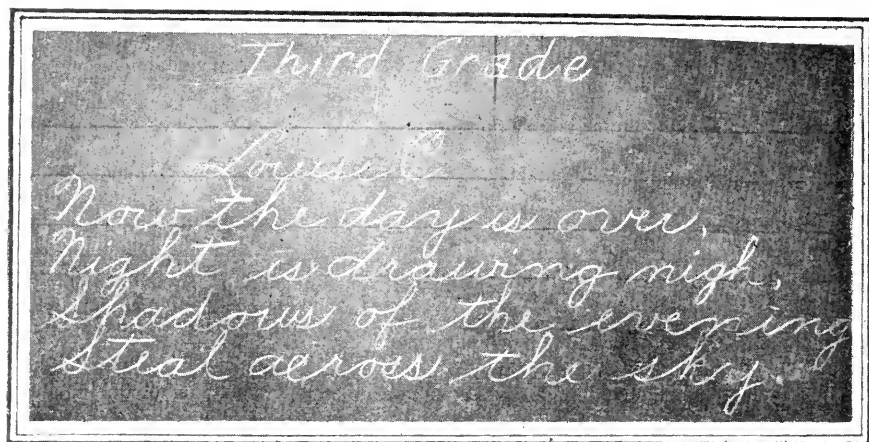 Third Grade
Louise C
Now the day is over,
Night is drawing nigh,
Shadows of the evening
Steal across the sky.